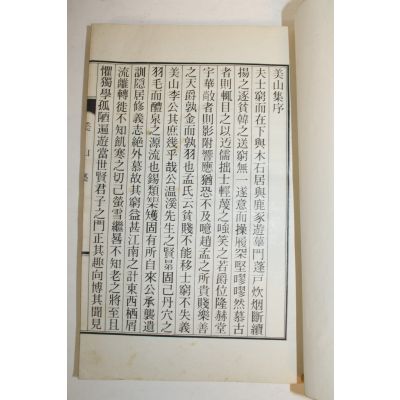 美山集序
夫士窮而在下與木石居與鹿豕遊蓽門蓬戶炊烟斷續
揚之逐貧韓之送窮無一遂意而操履高堅嘐嘐然慕古
者則輒目之以迂儒拙士輕蔑之嗤笑之若爵位隆赫堂
宇華敞者則影附響應猶恐不及噫趙孟之所貴賤樂善
之天爵孰金而孰羽也孟氏云貧賤不能移士窮不失義
美山李公其庶幾乎哉公溫溪先生之賢弟固已丹穴之
羽毛而醴泉之源流也錫類榘矱固有所自來公承襲遺
訓隱居修義志絶外慕故其窮益甚江南之計東西栖屑
流離轉徙不知飢寒之切己螢雪繼晷不知老之將至且
懼獨學孤陋遍遊當世賢君子之門正其趣向博其聞見